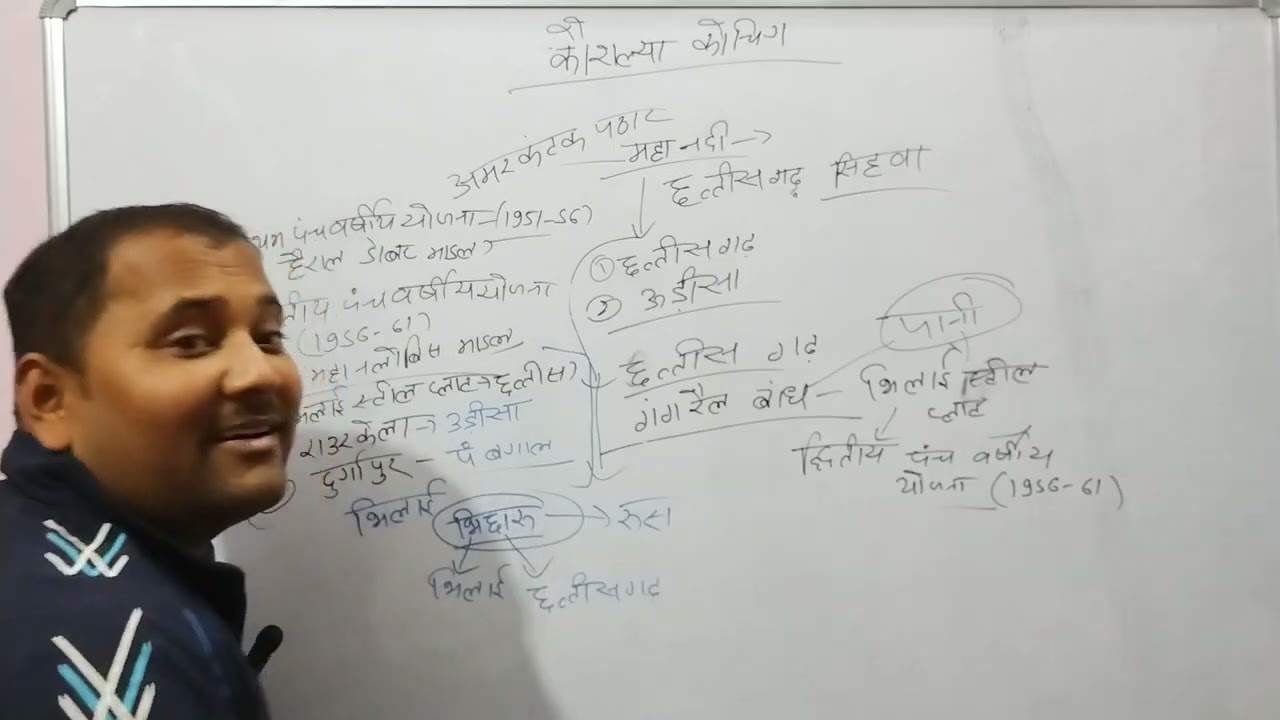 को
कौशल्या कोचिंग
अमरकंटक पठार
महानदी →
छत्तीसगढ़ सिहवा
पंचवर्षीय योजना - (1951-56)
हैराल्ड डोबर माडल
① छत्तीसगढ़
② उड़ीसा
पंचवर्षीय योजना
(1956-61)
महानलोबिस माडल
स्टील प्लांट → छत्तीस
राउरकेला → उड़ीसा
दुर्गापुर - पं बंगाल
छत्तीस गढ़
गंगरैल बांध - भिलाई स्टील
प्लांट
पानी
द्वितीय पंच वर्षीय
योजना (1956-61)
भिलाई भिछारू → रूस
भिलाई छत्तीसगढ़